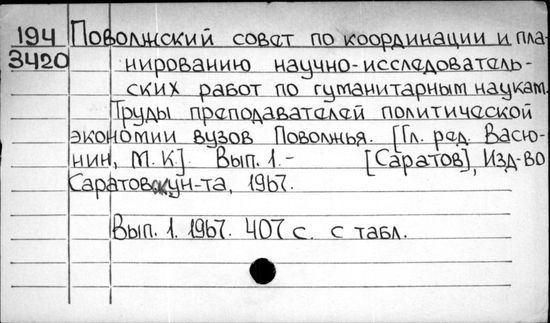 194 Поволжский совет по координации и пла-
3420 нированию научно-исследователь-
ских работ по гуманитарным наукам.
Труды преподавателей политической
экономии вузов Поволжья. [Гл. ред. Васю-
нин, М. К]. Вып. 1.- [Саратов], Изд-во
Саратов. ун-та, 1967.
Вып. 1. 1967. 407 с. с табл.